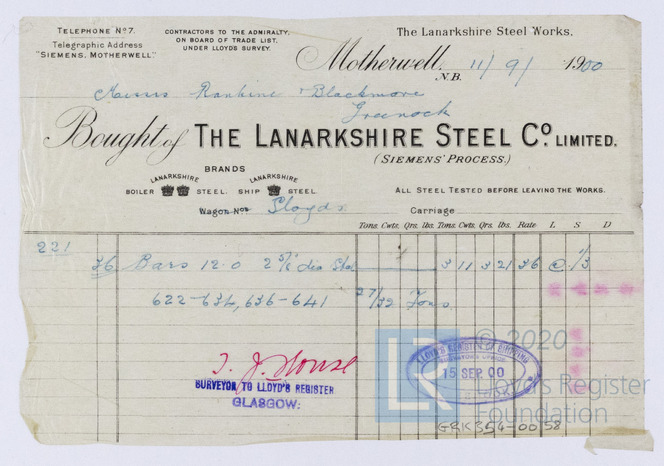 TELEPHONE Nº 7.
Telegraphic Address
"SIEMENS, MOTHERWELL"
CONTRACTORS TO THE ADMIRALTY,
ON BOARD OF TRADE LIST,
UNDER LLOYDS SURVEY.
The Lanarkshire Steel Works,
Motherwell, N.B. 11/9/1900
Messrs Rankine & Blackmore
Greenock
Bought of THE LANARKSHIRE STEEL Cº. LIMITED.
(SIEMENS' PROCESS.)
BRANDS
LANARKSHIRE LANARKSHIRE
BOILER STEEL. SHIP STEEL.
ALL STEEL TESTED BEFORE LEAVING THE WORKS.
Wagon Nos Lloyds Carriage
Tons. Cwts. Qrs. lbs. Tons. Cwts. Qrs. lbs. Rate L S D
221
36 Bars 12.0 2 5/8 dia Std 3 11 3 21 36 @ 1/3
622-634, 636-641 27/32 Tons
T. J. House
SURVEYOR TO LLOYD'S REGISTER
GLASGOW.
LLOYD'S REGISTER OF SHIPPING
15 SEP. 00
© 2020
LR
Lloyd's Register
Foundation
GRK354-0058